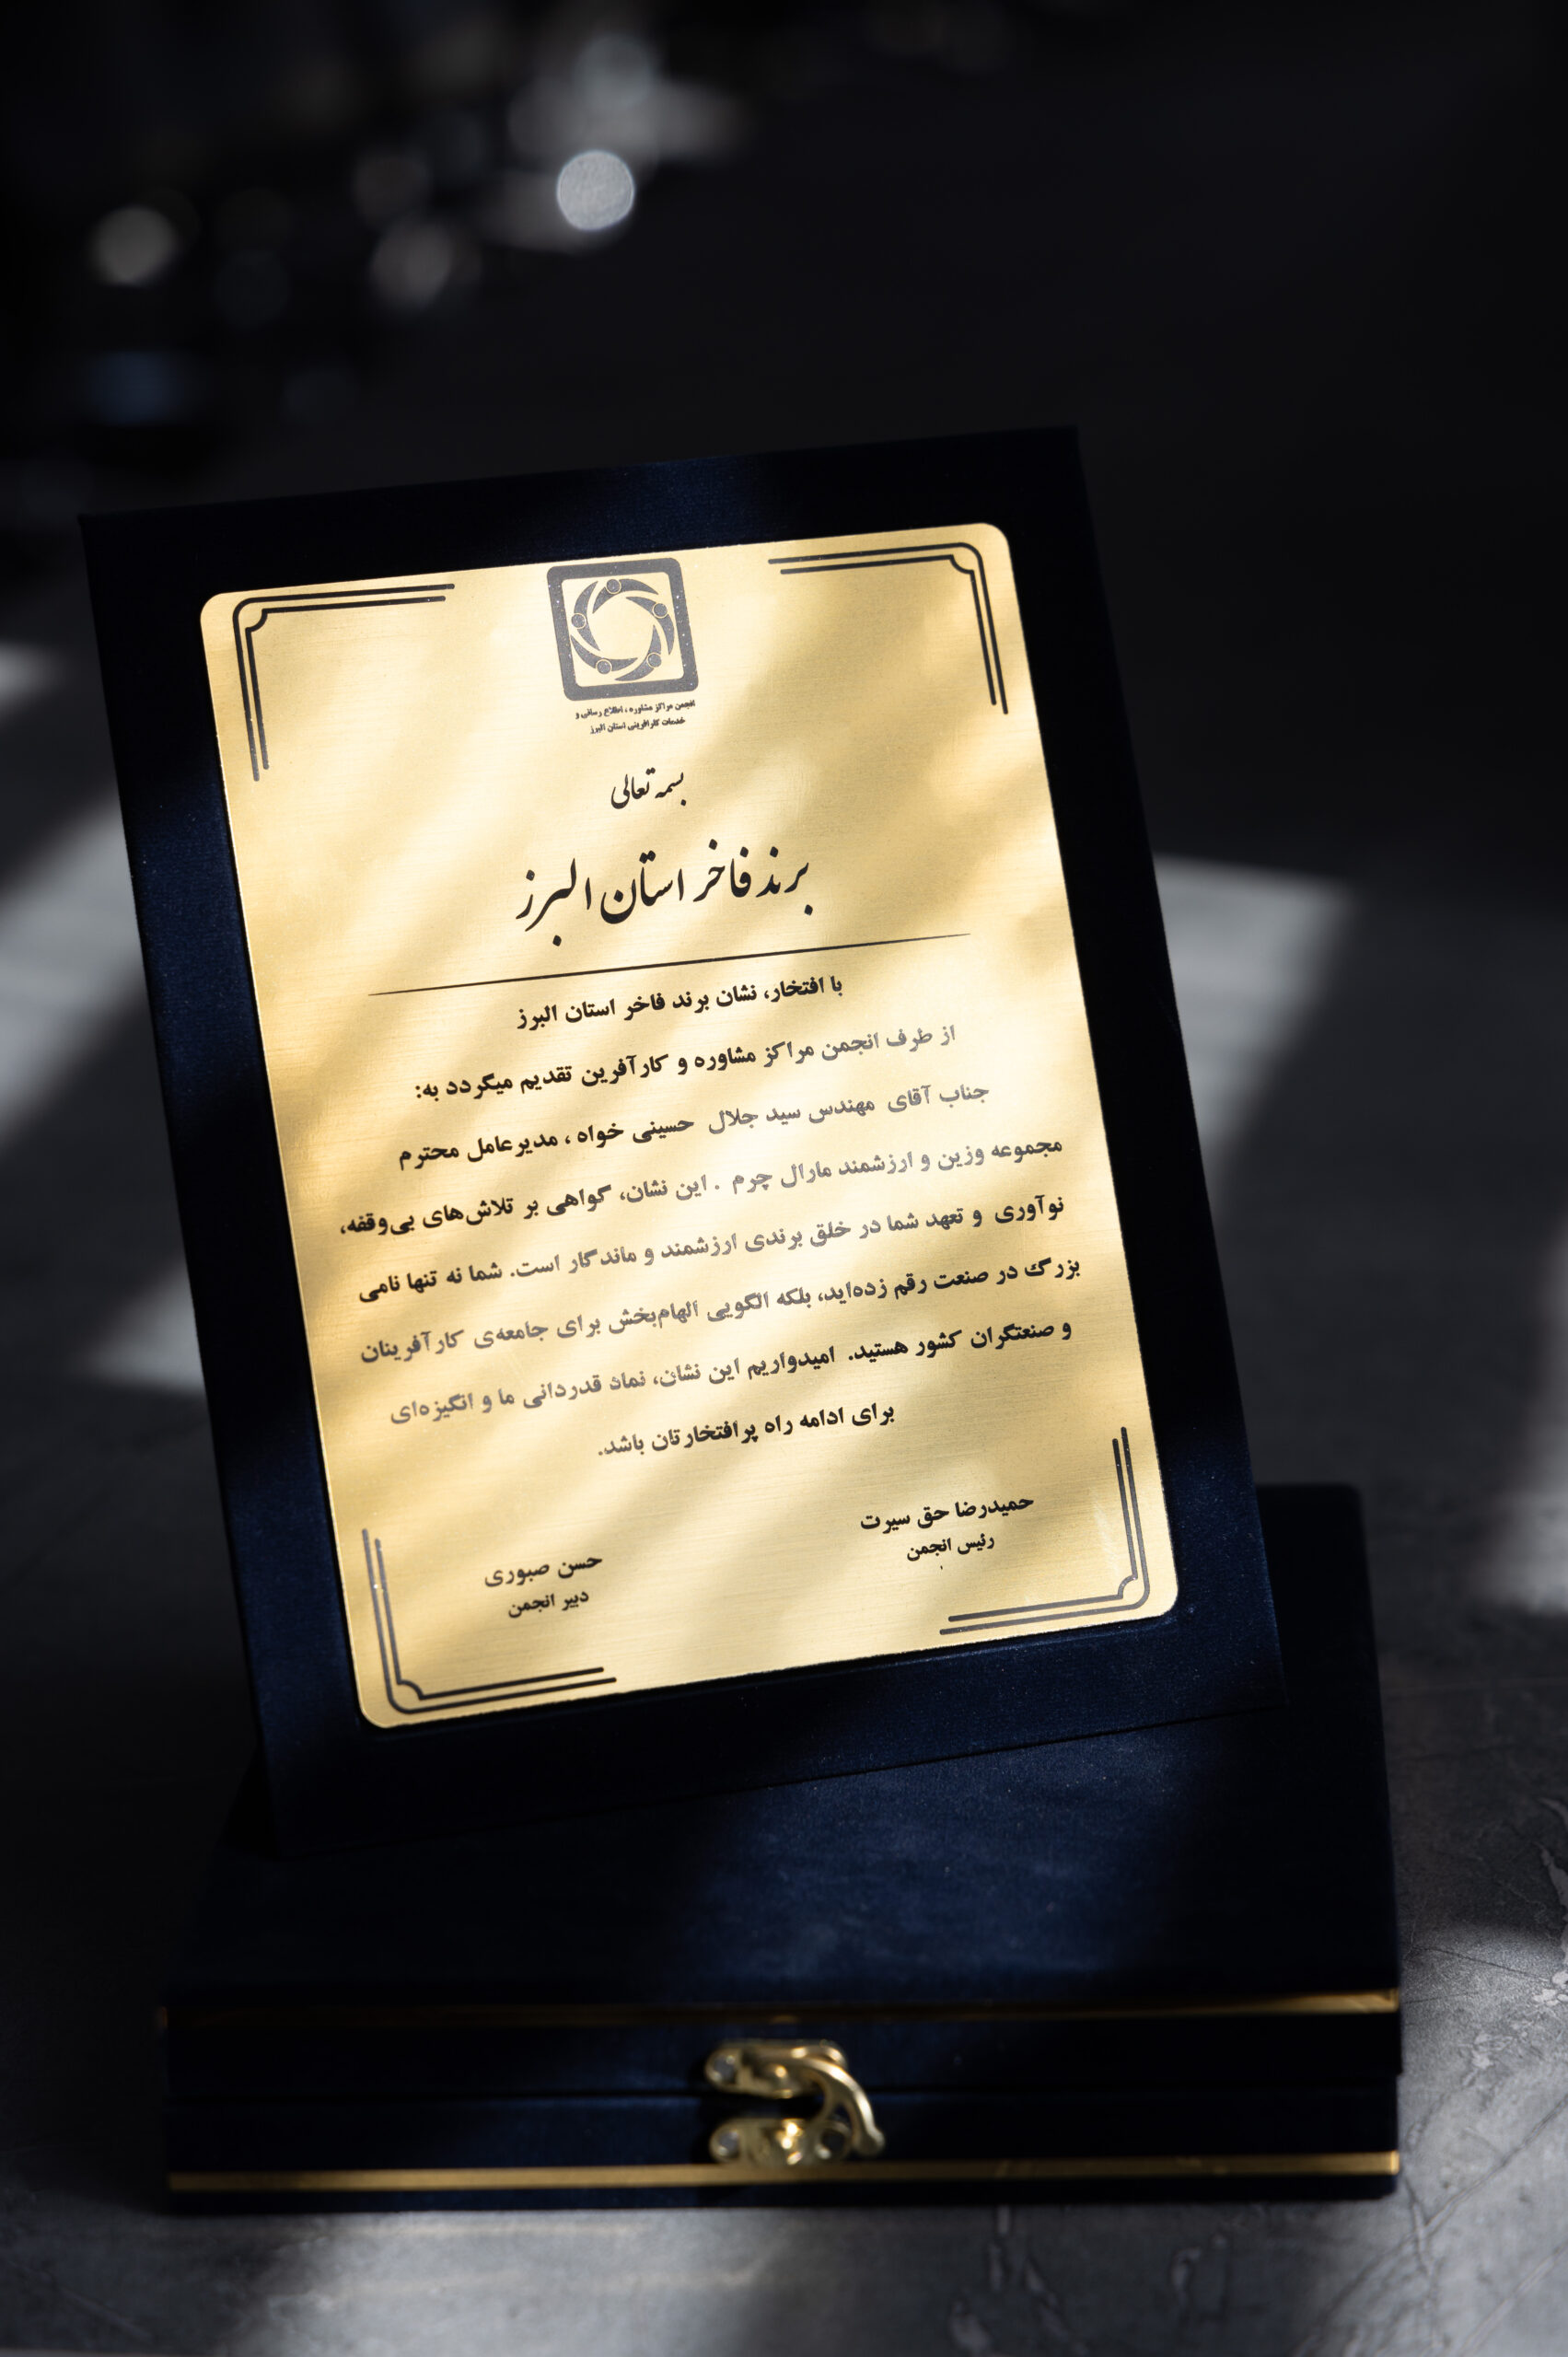 انجمن مراکز مشاوره ، اطلاع رسانی و
خدمات کارآفرینی استان البرز
بسمه تعالی
برند فاخر استان البرز
با افتخار، نشان برند فاخر استان البرز
از طرف انجمن مراکز مشاوره و کارآفرین تقدیم میگردد به:
جناب آقای مهندس سید جلال حسینی خواه ، مدیرعامل محترم
مجموعه وزین و ارزشمند مارال چرم . این نشان، گواهی بر تلاش‌های بی‌وقفه،
نوآوری و تعهد شما در خلق برندی ارزشمند و ماندگار است. شما نه تنها نامی
بزرگ در صنعت رقم زده‌اید، بلکه الگویی الهام‌بخش برای جامعه‌ی کارآفرینان
و صنعتگران کشور هستید. امیدواریم این نشان، نماد قدردانی ما و انگیزه‌ای
برای ادامه راه پرافتخارتان باشد.
حمیدرضا حق سیرت
رئیس انجمن
حسن صبوری
دبیر انجمن